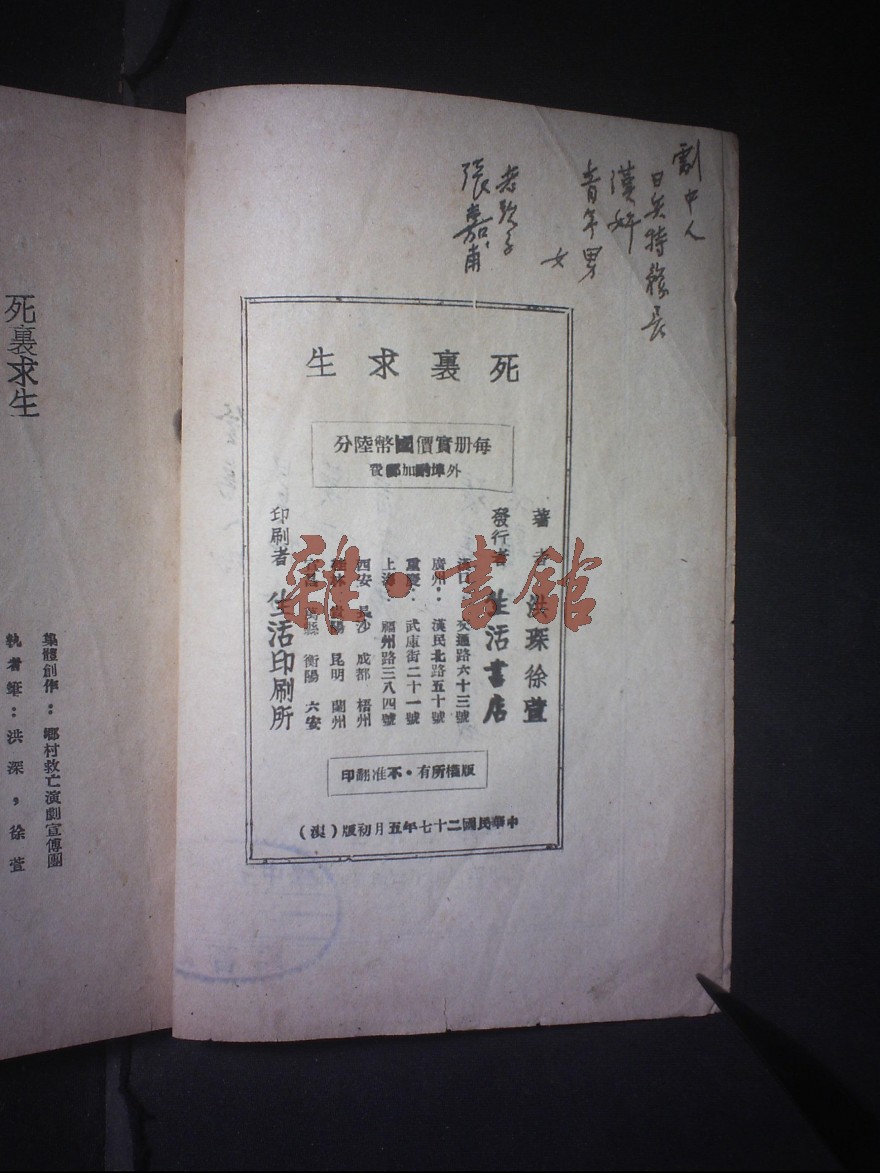 劇中人
日矣特務長
漢奸
青年男
女
老頭子
張嘉甫
死裏求生
每册實價國幣陸分
外埠酌加郵費
著者 洪琛 徐萱
發行者 生活書店
漢口 交通路六十三號
廣州：漢民北路五十號
重慶：武庫街二十一號
上海 福州路三八四號
西安 長沙 成都 梧州
桂林 貴陽 昆明 蘭州
宜昌 萬縣 衡陽 六安
印刷者 生活印刷所
版權所有・不准翻印
中華民國二十七年五月初版（漢）
雜・書館
死裏求生
集體創作：鄉村救亡演劇宣傳團
執筆者：洪深，徐萱